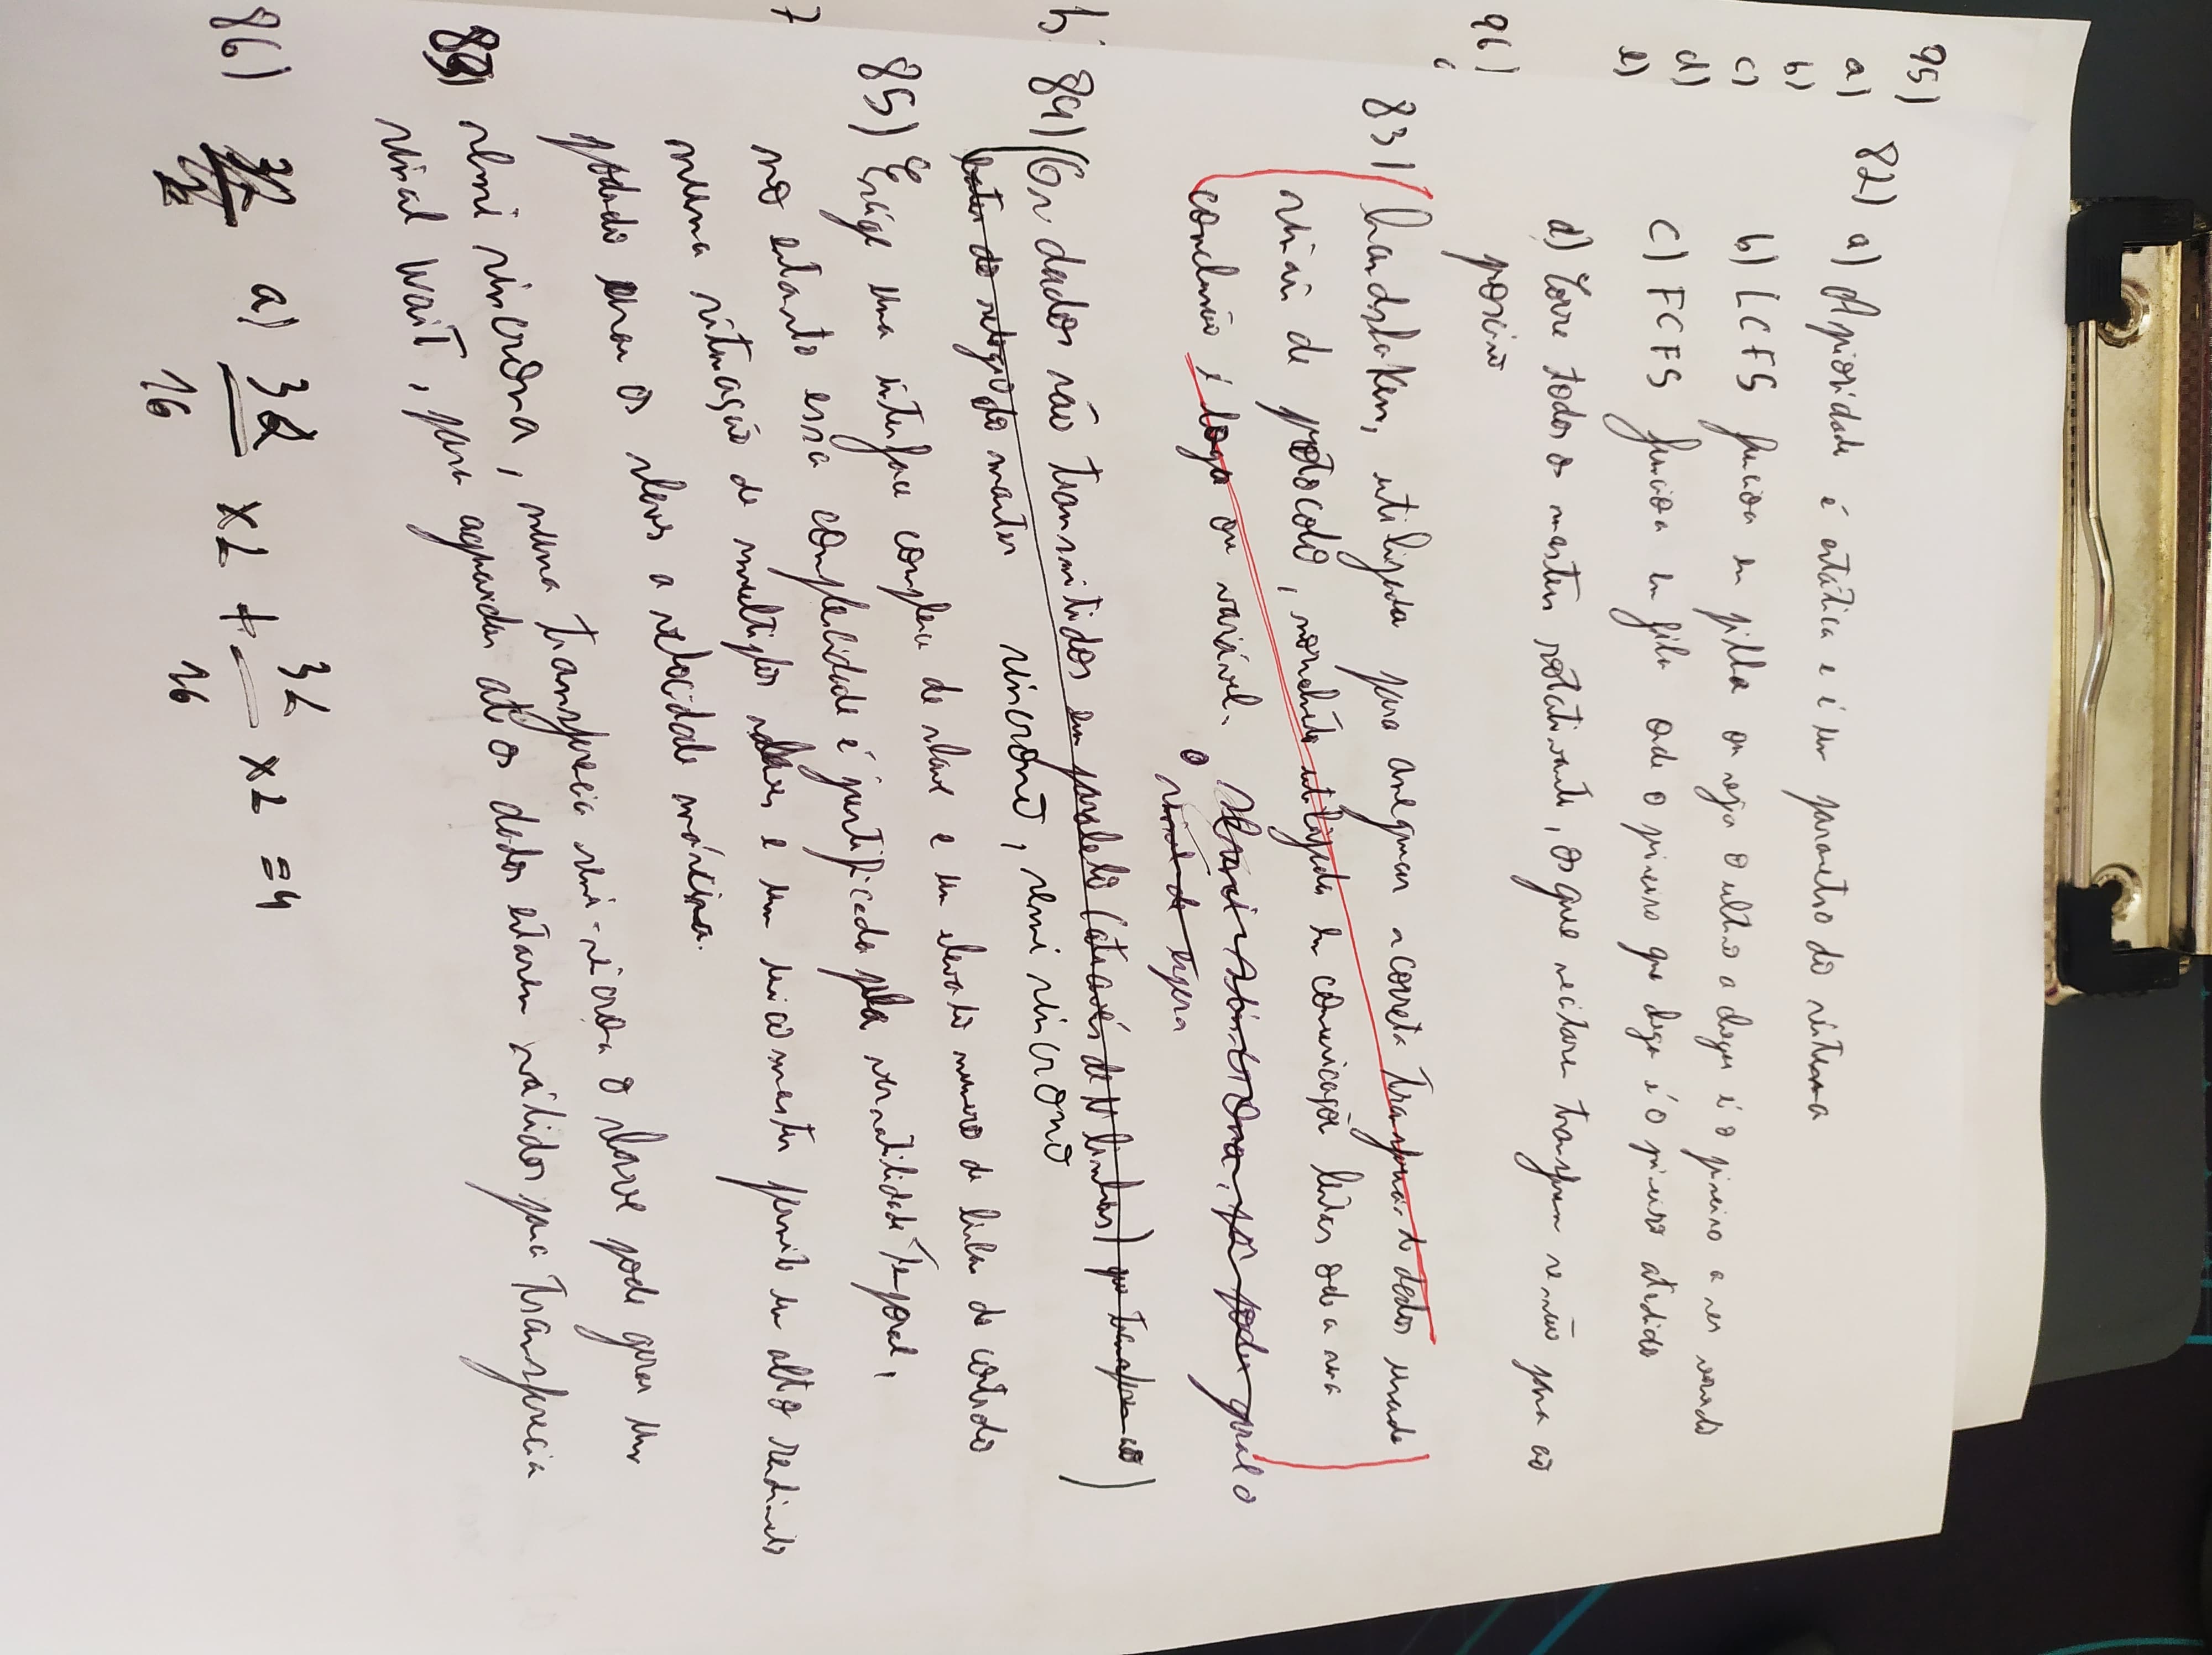 95)
a)
b)
c)
d)
e)
96)
82) a) A prioridade é estática e é um parametro do sistema
b) LCFS funciona em pilha ou seja o ultimo a chegar é o primeiro a ser
c) FCFS funciona em fila onde o primeiro que chega é o primeiro atendido
d) Corre todos os masters rotativamente, os que necitarem transferem se não para ao
proximo
83) handshaken, utilizada para assegurar a correta transferencia de dados usando
sinais de protocolo, normalmente utilizada em comunicações lentas onde a sua
conclusão é longa ou variável.
Semi síncrona, por poder geral o
sinal de espera
84) (Os dados são transmitidos em paralelo (através de N linhas) que transferem ao
bater do relogio do master síncrono, semi síncrono
85) Exige uma interface complexa de slave e um elevado numero de linhas de controlo
no entanto essa complexidade é justificada pela versatilidade Temporal,
numa situação de multiplos slaves e um unico master permite um alto rendimento
podendo usar os slaves a velocidade máxima.
83) semi síncrona, numa transferencia semi-sincrona o slave pode gerar um
sinal WAIT, para aguardar até os dados estarem válidos para transferencia
86) a) 32/16 x2 + 32/16 x2 = 4
b
7